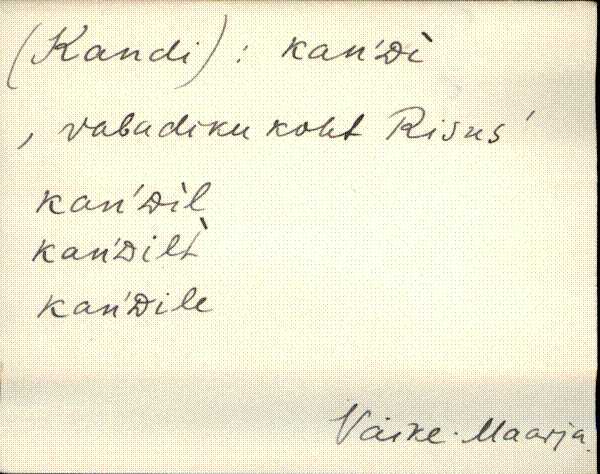 (Kandi) : kań'ᴅì
, vabadiku koht Risus'
kań'ᴅìl
kań'ᴅilt̀
kań'ᴅile
Väike-Maarja.